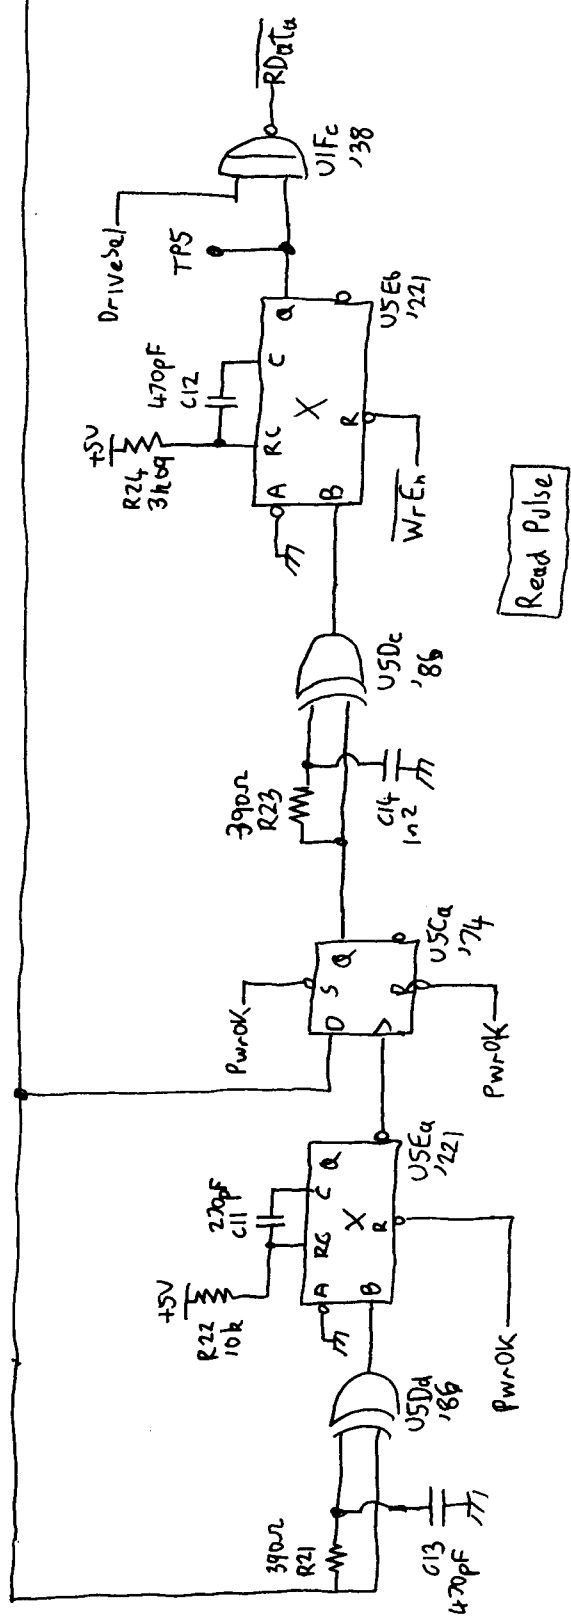 390Ω
R21
C13
470pF
U5Dd
'86
+5V
R22
10k
270pF
C11
A
RC
C
Q
X
B
R
U5Ea
'221
PwrOK
PwrOK
D
S
Q
R
U5Ca
'74
PwrOK
390Ω
R23
C14
1n2
U5Dc
'86
+5V
R24
3k09
470pF
C12
A
RC
C
Q
X
B
R
U5Eb
'221
WrEn
TP5
DriveSel
U1Fc
'38
RData
Read Pulse